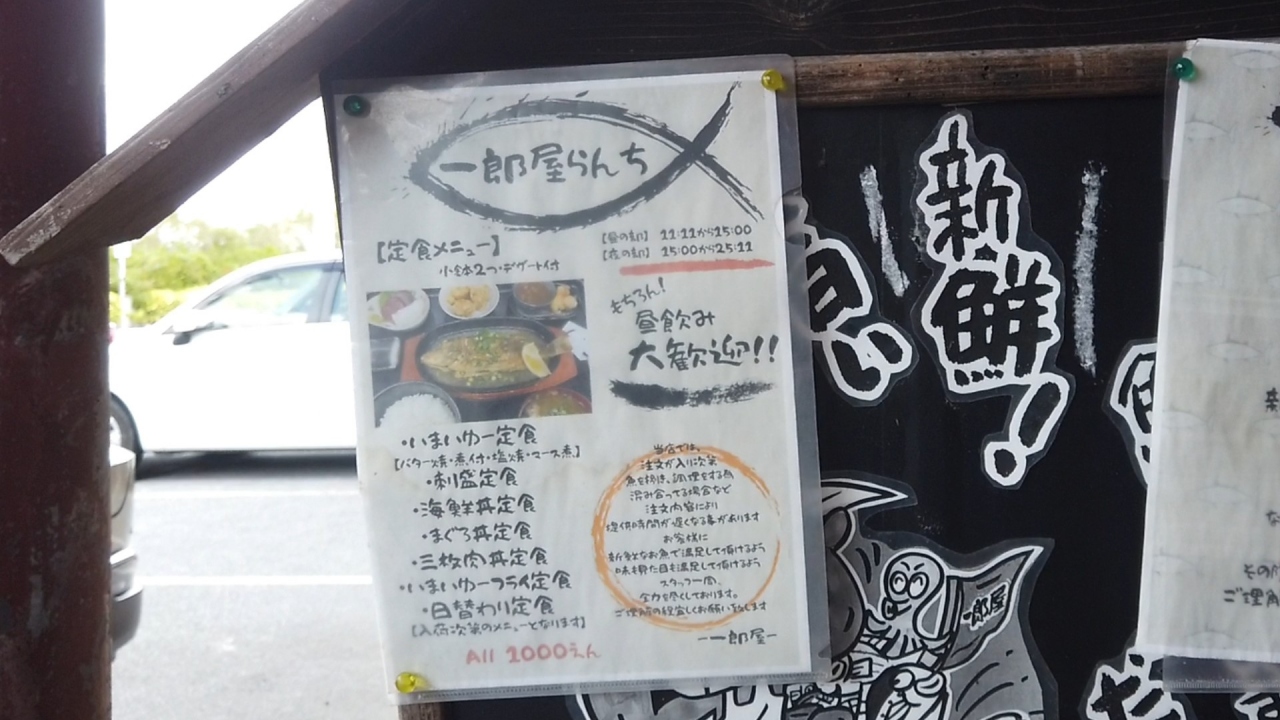 一郎屋らんち
【定食メニュー】
小鉢2つ・デザート付
【昼の部】 11:11から15:00
【夜の部】 15:00から25:11
もちろん!
昼飲み
大歓迎!!
・いまいゆー定食
【バター焼・煮付・塩焼・マース煮】
・刺盛定食
・海鮮丼定食
・まぐろ丼定食
・三枚肉丼定食
・いまいゆーフライ定食
・日替わり定食
【入荷次第のメニューとなります】
All 1000えん
当店では、
注文が入り次第
魚を捌き、調理をする為
混み合ってる場合など
注文内容により
提供時間が遅くなる事があります
お客様に
新鮮なお魚で満足して頂けるよう
味も見た目も満足して頂けるよう
スタッフ一同、
全力を尽くしております。
ご理解の程宜しくお願い致します
-一郎屋-
新鮮!
い
一郎屋
その
ご理解